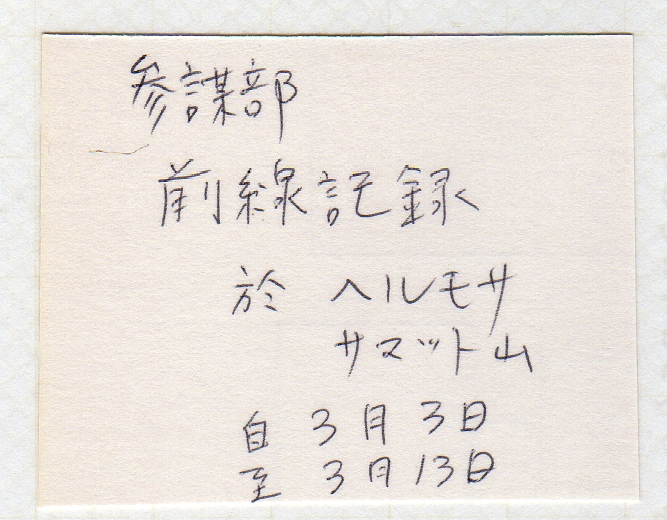 参謀部
前線記録
於 ヘルモサ
サマット山
自 3月3日
至 3月13日